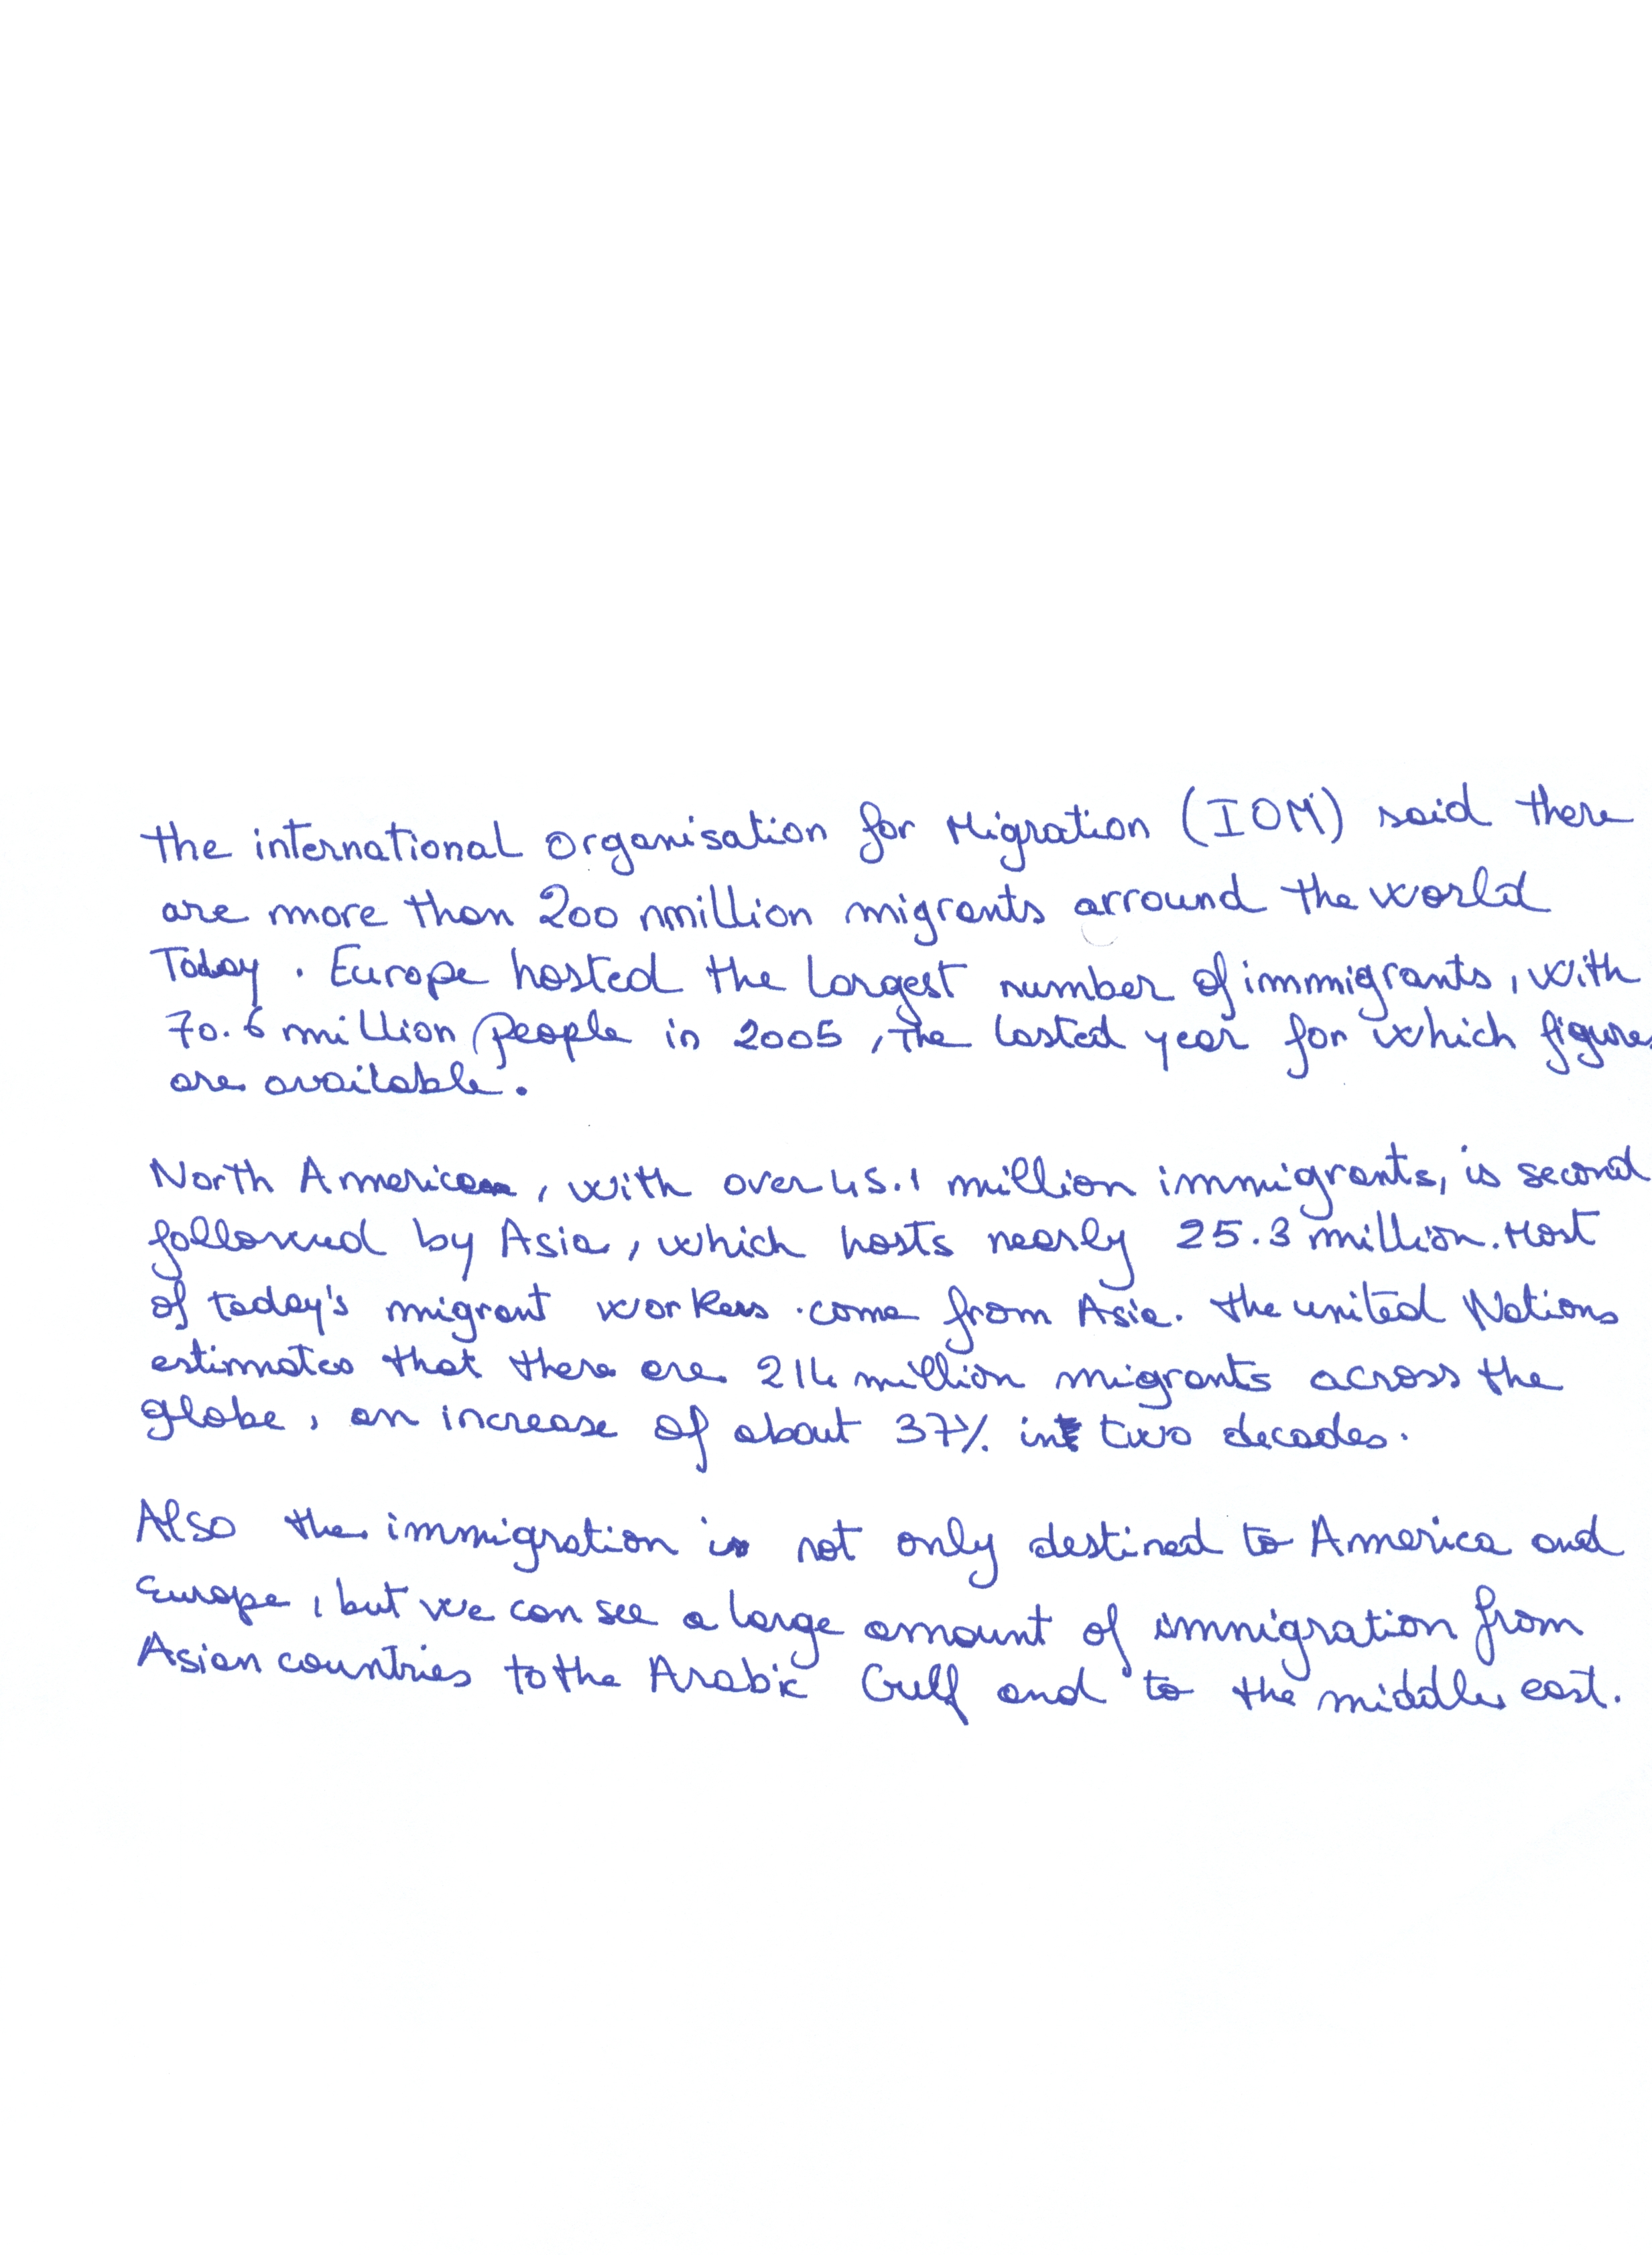 the international organisation for Migration (IOM) said there
are more than 200 nmillion migrants arround the world
Today. Europe hosted the largest number of immigrants, with
70.6 million people in 2005, The lasted year for which figures
are available.
North American, with over 45.1 million immigrants, is second
followed by Asia, which hosts nearly 25.3 million. Most
of today's migrant workers come from Asia. the united Nations
estimates that there are 214 million migrants across the
globe, an increase of about 37% in two decades.
Also the immigration is not only destined to America and
Europe, but we can see a large amount of immigration from
Asian countries to the Arabic Gulf and to the middle east.